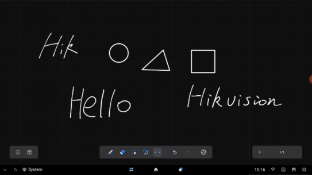 Hik
Hello
Hikvision
System
10:16